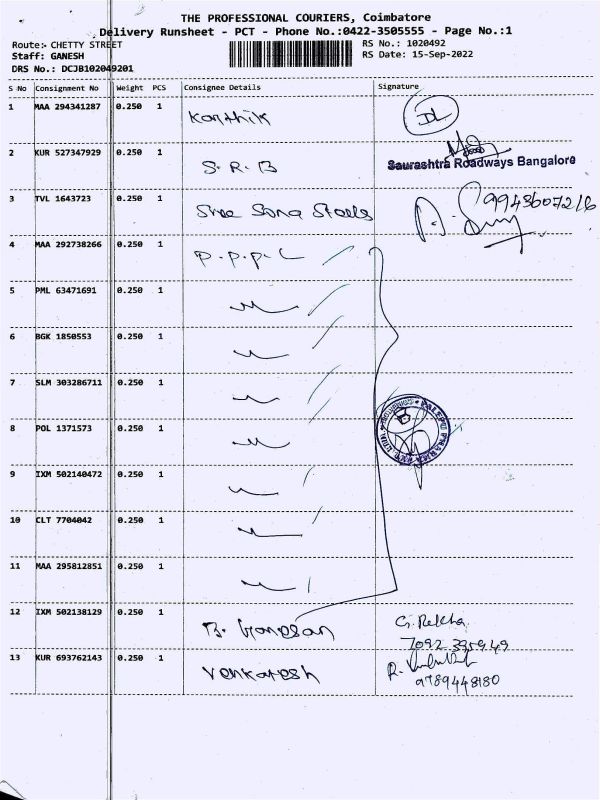 THE PROFESSIONAL COURIERS, Coimbatore
Delivery Runsheet - PCT - Phone No.:0422-3505555 - Page No.:1
Route:- CHETTY STREET
RS No.: 1020492
Staff: GANESH
RS Date: 15-Sep-2022
DRS No.: DCJB102049201
S No Consignment No Weight PCS Consignee Details Signature
1 MAA 294341287 0.250 1 Karthik
2 KUR 527347929 0.250 1 S.R.B
Saurashtra Roadways Bangalore
3 TVL 1643723 0.250 1 Sree Sona Steels 9943607216
4 MAA 292738266 0.250 1 P.P.P.L
5 PML 63471691 0.250 1
6 BGK 1850553 0.250 1
7 SLM 303286711 0.250 1
8 POL 1371573 0.250 1
9 IXM 502140472 0.250 1
10 CLT 7704042 0.250 1
11 MAA 295812851 0.250 1
12 IXM 502138129 0.250 1 B. Ganesan G. Rekha
7092 395949
13 KUR 693762143 0.250 1 Venkatesh
9789448180